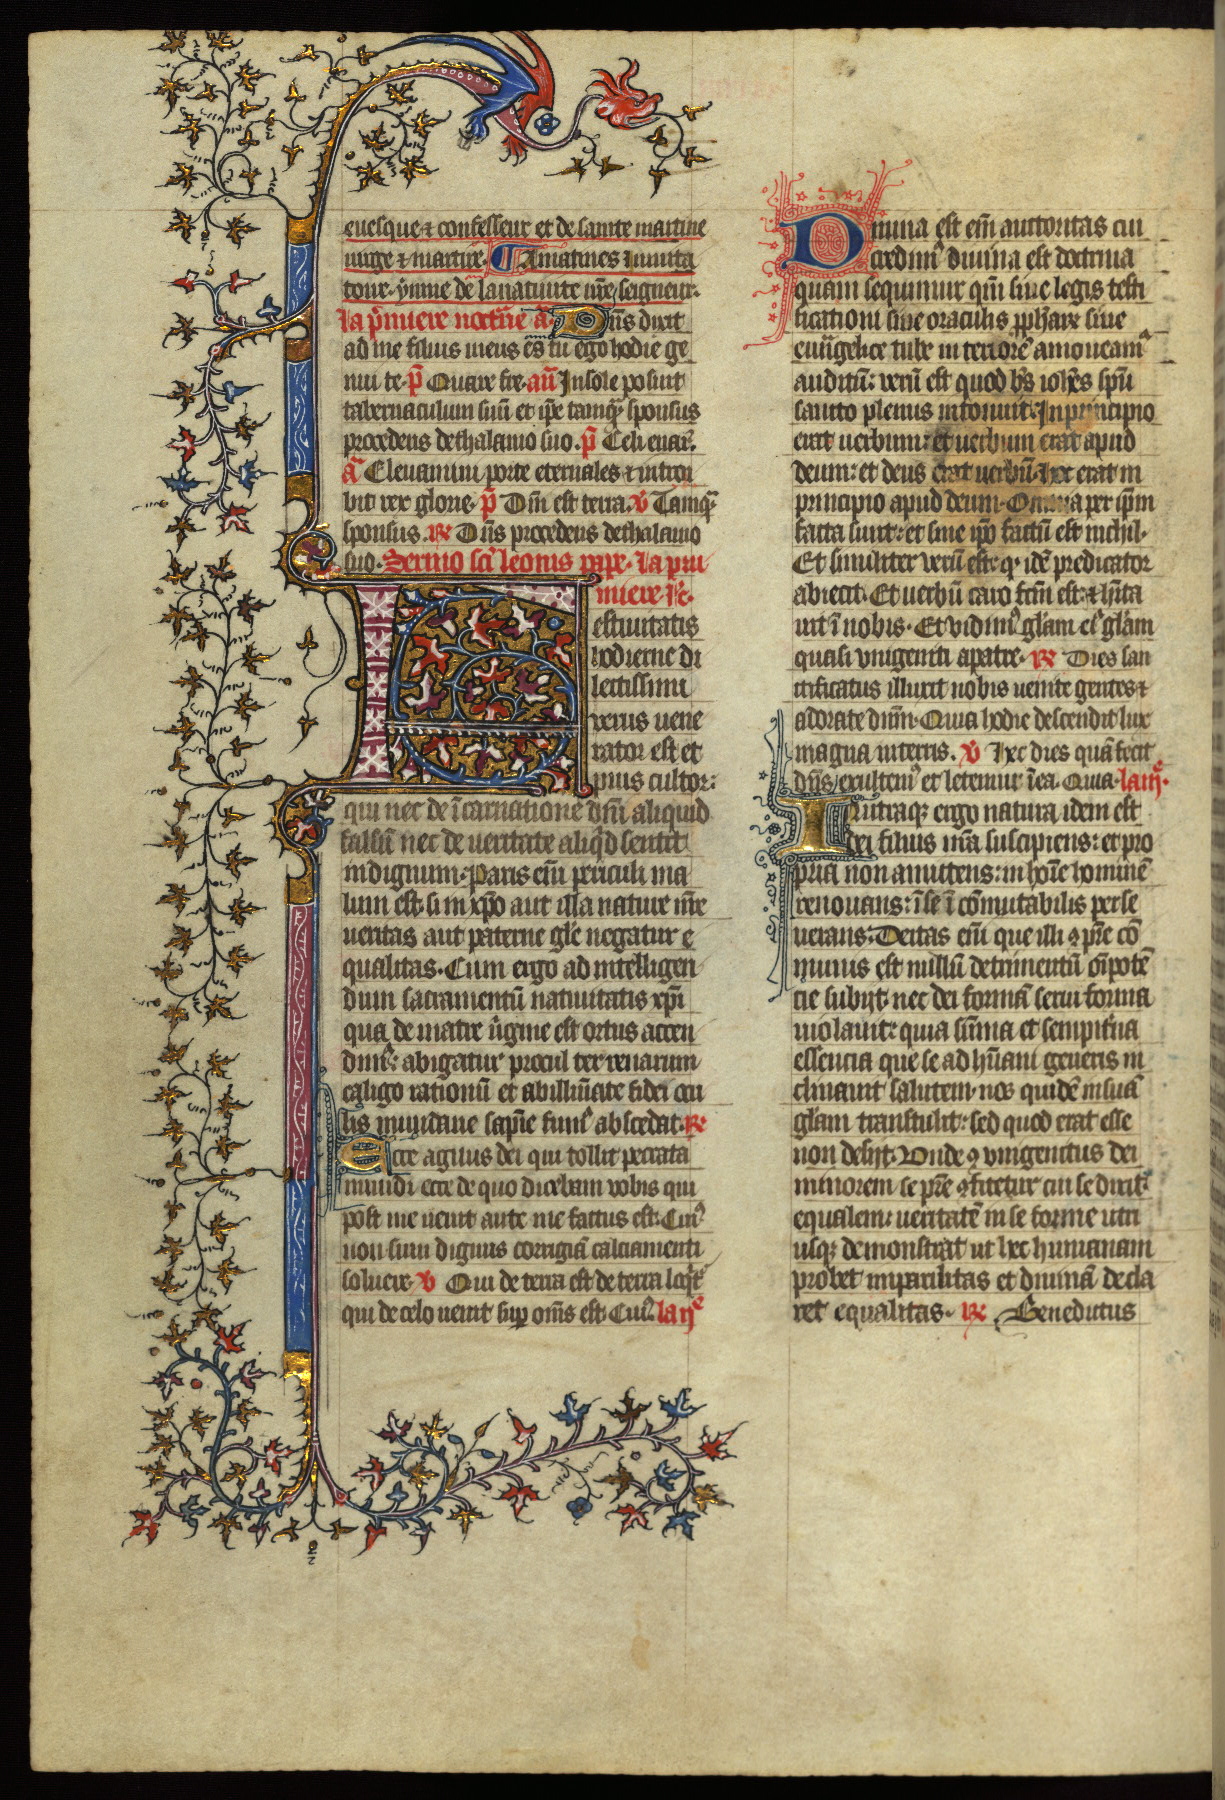 euesque ⁊ confesseur et de sainte martine
uirge ⁊ martire. A matines Inuita
toire. ymne de la natiuite nr̄e seigneur.
la p̄miere nocturne a͞. Dn̄s dixit
ad me filius meus es tu ego hodie ge
nui te. p̄ Quare fre. an̄ In sole posuit
tabernaculum suū et ip̄e tamqͣ sponsus
procedens de thalamo suo. p̄ Celi enar̄.
a͞ Eleuamini porte eternales ⁊ introi
bit rex glorie. p̄ Dn̄i est terra. v̄ Tamqͣ
sponsus. R̄ Dn̄s procedens de thalamo
suo. Sermo sc̄i leonis pape. la pri
miere lc̄.
Festiuitatis
hodierne di
lectissimi
verus uene
rator est et
pius cultor:
qui nec de īcarnatione dn̄i aliquid
falsū nec de ueritate aliqͥd sentit
indignum. Paris eīn periculi ma
lum est. si in xp̄o aut illa nature nr̄e
ueritas aut paterne gl̄e negatur e
qualitas. Cum ergo ad intelligen
dum sacramentū natiuitatis xp̄i
qua de matre ūgine est ortus accen
dimͬ: abigatur procul terrenarum
caligo rationū et ab illuīate fidei ocu
lis mundane sapīe fumͬ abscedat. R̄
Ecce agnus dei qui tollit peccata
mundi ecce de quo dicebam vobis qui
post me uenit ante me factus est. Cuiͬ
non sum dignus corrigiā calciamenti
soluere. v̄ Qui de terra est de terra loqͥt͛
qui de celo uenit sup om̄s est. Cuiͬ. la ijͤ
Diuina est eīn auctoritas cui
credimͬ diuina est doctrina
quam sequimur qm̄ siue legis testi
ficationi siue oraculis pphare siue
euūgelice tube interiorē amoueamͬ
auditū: verū est quod bs̄ ioh̄es sp̄u
sancto plenus intonuit. In principio
erat uerbum: et uerbum erat apud
deum: et deus erat uerbū. hec erat in
principio apud deum. Omnia per ip̄m
facta sunt: et sine ip̄o factū est nichil.
Et similiter verū est: qͥ idē predicator
abiecit. Et uerbū caro fc̄m est: ⁊ hīta
uit ī nobis. Et vidimͬ gl̄am eiͬ gl̄am
quasi vnigeniti a patre. R̄ Dies san
ctificatus illuxit nobis uenite gentes ⁊
adorate dn̄m. Quia hodie descendit lux
magna in terris. v̄ Hec dies quā fecit
dn̄s exultemͬ et letemur ī ea. Quia. la iijͤ.
In utraqꝫ ergo natura idem est
dei filius nr̄a suscipiens: et pro
pria non amittens: in hoīe hominē
renouans: ī se ī cōmutabilis perse
uerans: Deitas eīn que illi ꝯ pr̄e cō
munis est nullū detrimentū oīpotē
cie subijt: nec dei formā serui forma
uiolauit: quia sūma et sempit͛na
essencia que se ad hūani generis in
clinauit salutem. nos quidē in suā
gl̄am transtulit: sed quod erat esse
non desijt. Vnde ꝯ vnigenitus dei
minorem se pr̄e ꝯfitetur cui se dicit
equalem: ueritatē in se forme utri
usqꝫ demonstrat ut hec humanam
probet imparilitas et diuinā decla
ret equalitas. R̄ Benedictus